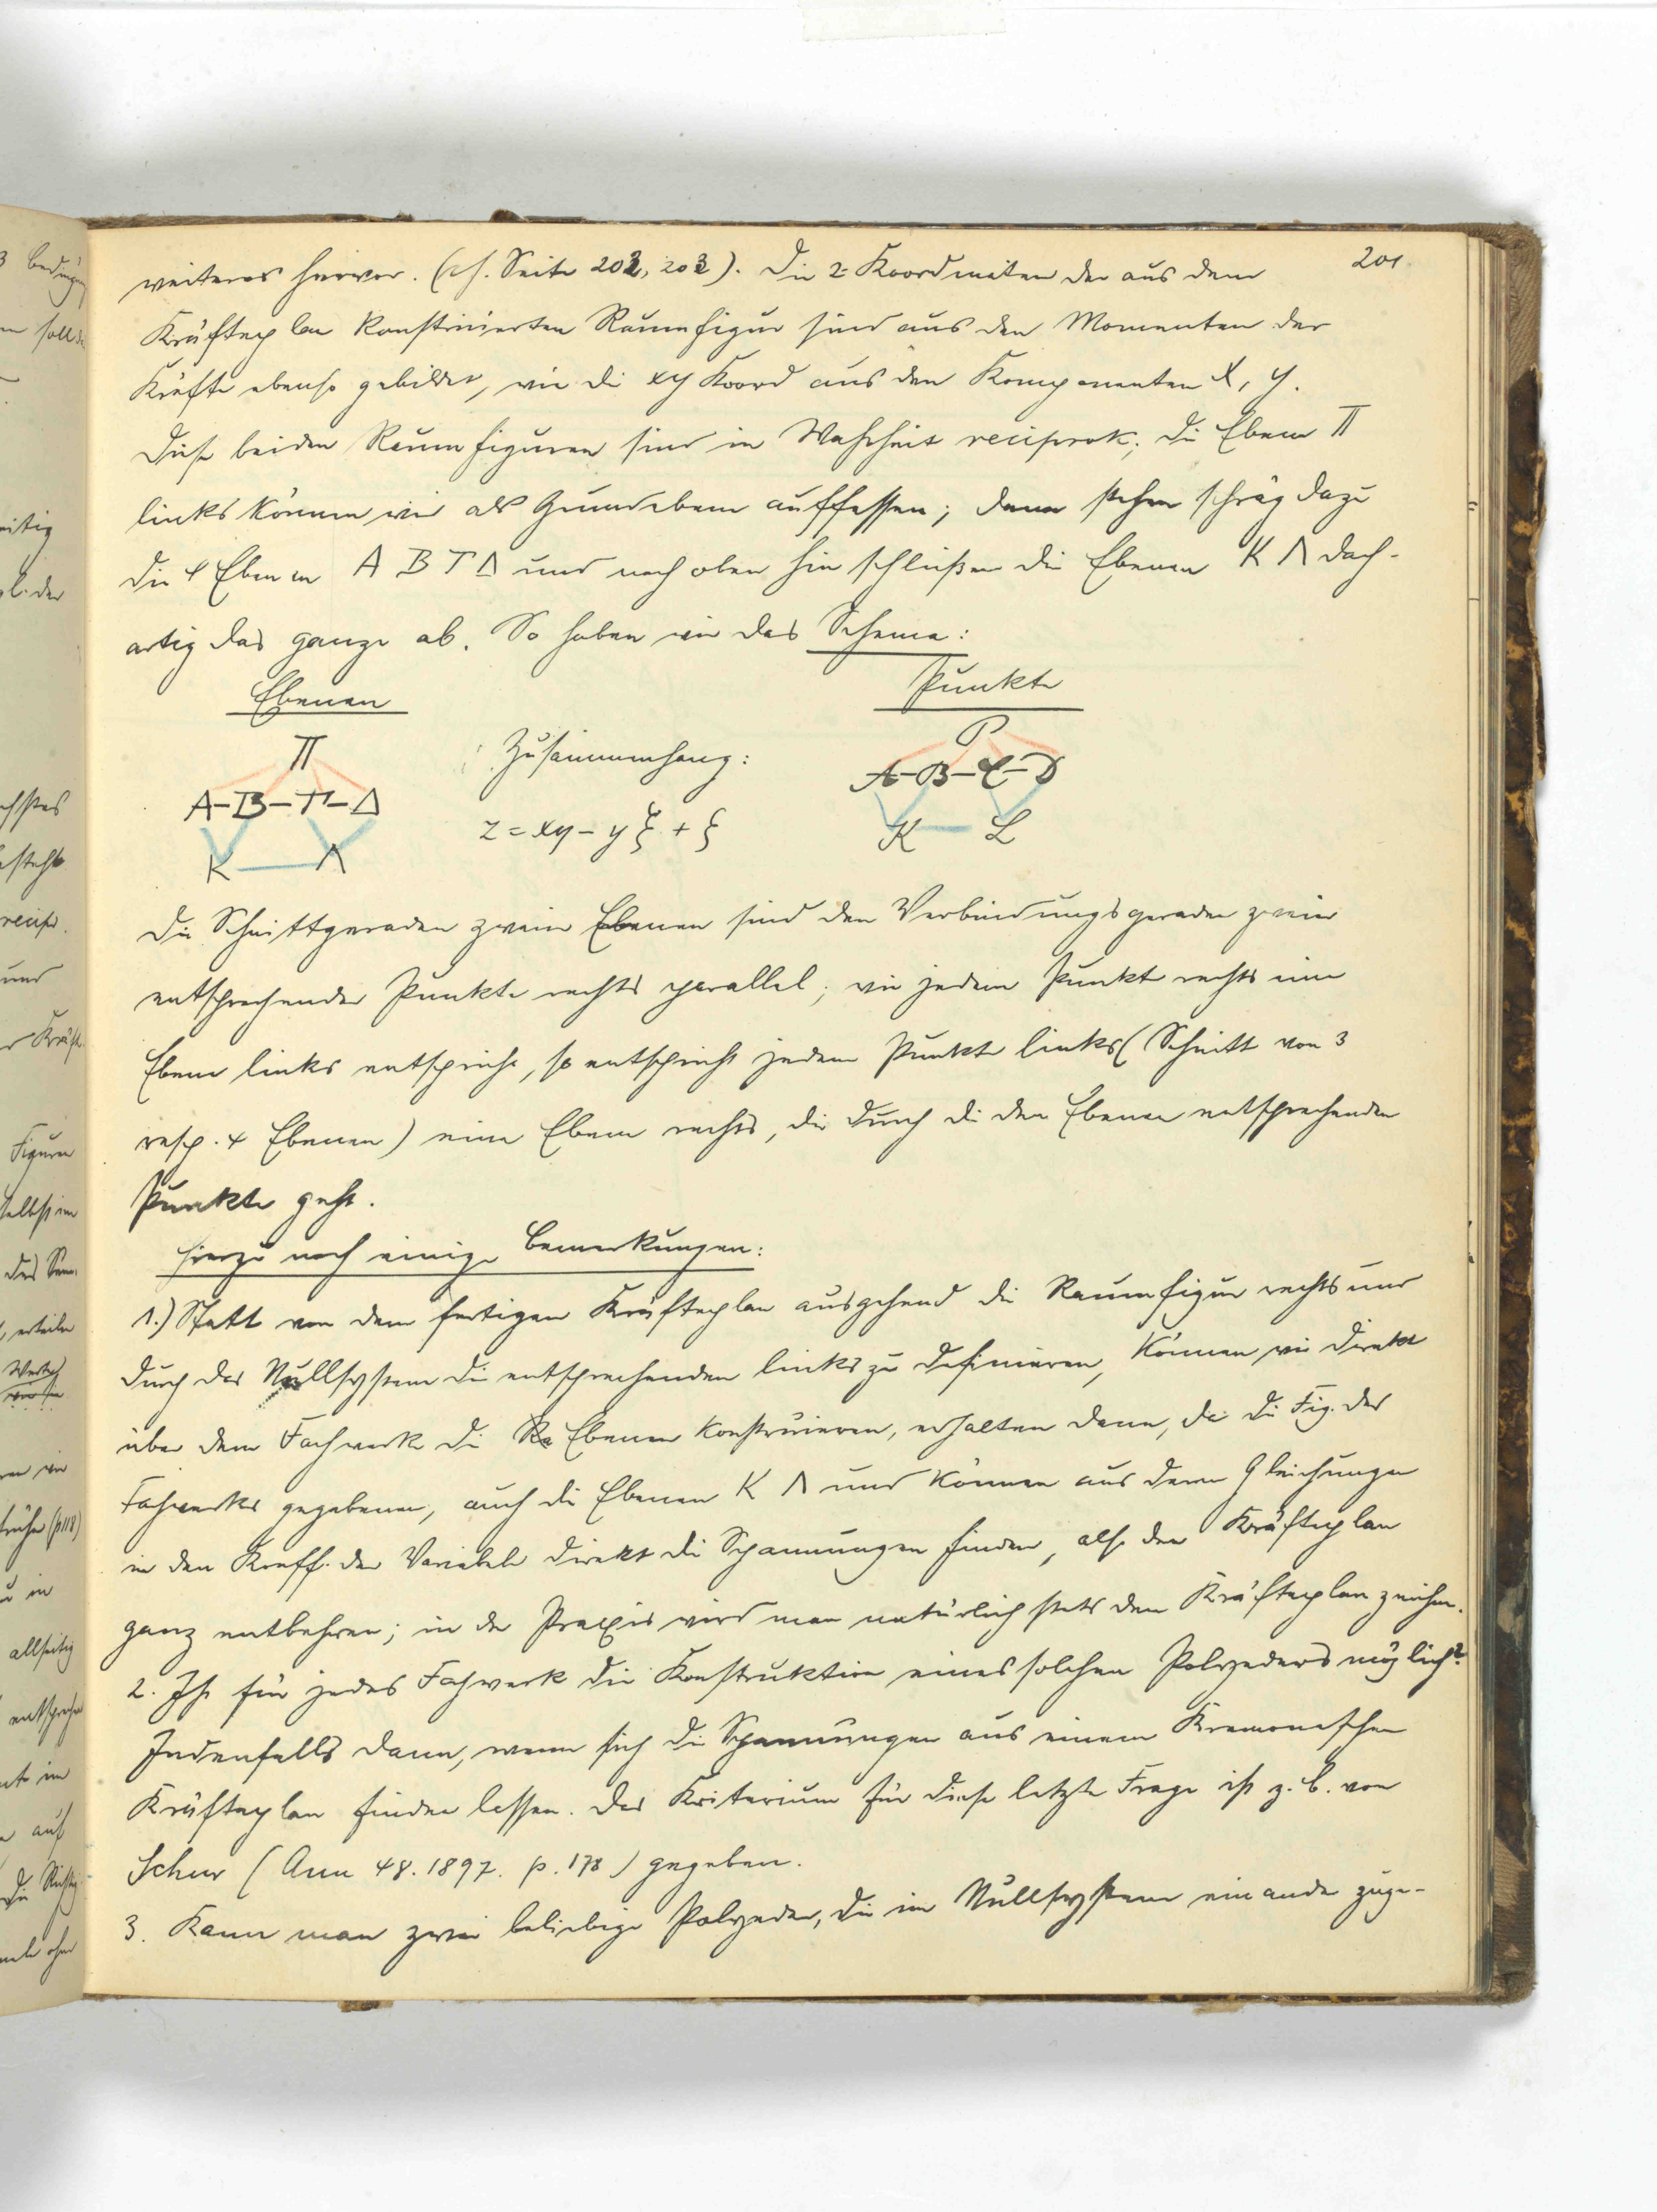 201
weiteres hervor. (cf. Seite 202, 203). Die z-Koordinaten der aus dem
Kräfteplan konstruierten Raumfigur sind aus den Momenten der
Kräfte ebenso gebildet, wie die xy Koord aus den Komponenten X, Y.
Diese beiden Raumfiguren sind in Wahrheit reciprok; die Ebene Π
links können wir als Grundebene auffassen; dann stehen schräg dazu
die 4 Ebenen A B Γ Δ und nach oben hin schließen die Ebenen K Λ dach-
artig das ganze ab. So haben wir das Schema:
Ebenen
Punkte
Π
A-B-Γ-Δ
K Λ
Zusammenhang:
z = xy - yξ + ζ
P
A-B-C-D
K L
Die Schnittgeraden zweier Ebenen sind den Verbindungsgeraden zweier
entsprechender Punkte rechts parallel; wie jedem Punkt rechts eine
Ebene links entspricht, so entspricht jedem Punkte links (Schnitt von 3
resp. 4 Ebenen) eine Ebene rechts, die durch die den Ebenen entsprechenden
Punkte geht.
Hierzu noch einige Bemerkungen:
1.) Statt von dem fertigen Kräfteplan ausgehend die Raumfigur rechts und
durch das Nullsystem die entsprechenden links zu definieren, können wir direkt
über dem Fachwerk die Ebenen konstruieren, erhalten dann, da die Fig. des
Fachwerks gegeben, auch die Ebenen K Λ und können aus deren Gleichungen
in den Koeff. der Variabeln direkt die Spannungen finden, also den Kräfteplan
ganz entbehren; in der Praxis wird man natürlich stets den Kräfteplan zeichnen.
2. Ist für jedes Fachwerk die Konstruktion eines solchen Polyeders möglich?
Jedenfalls dann, wenn sich die Spannungen aus einem Kremonaschen
Kräfteplan finden lassen. Das Kriterium für diese letzte Frage ist z. B. von
Schur (Ann 48. 1897. p. 178) gegeben.
3. Kann man zwei beliebige Polyeder, die im Nullsystem einander zuge-